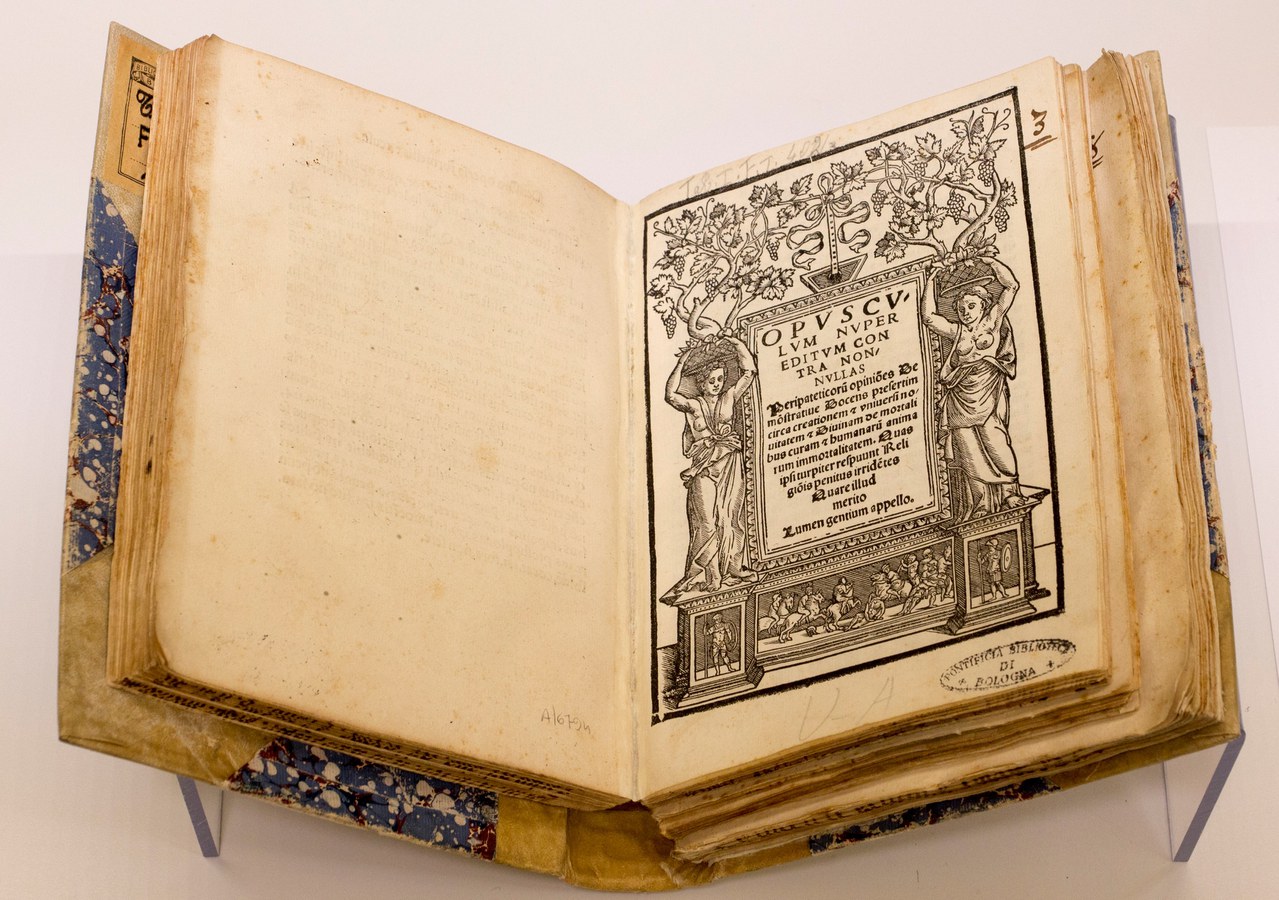 A/6794
137
OPVSCV-
LVM NVPER
EDITVM CON
TRA NON/
NVLLAS
Peripateticorũ opiniões De
mõstratiue Docens presertim
circa creationem ⁊ vniuersi no/
uitatem ⁊ Diuinam de mortali
bus curam ⁊ humanarũ anima
rum immortalitatem. Quas
ipsi turpiter respuunt Reli
giõis penitus irridẽtes
Quare illud
merito
Lumen gentium appello.
PONTIFICIA BIBLIOTECA
DI
BOLOGNA